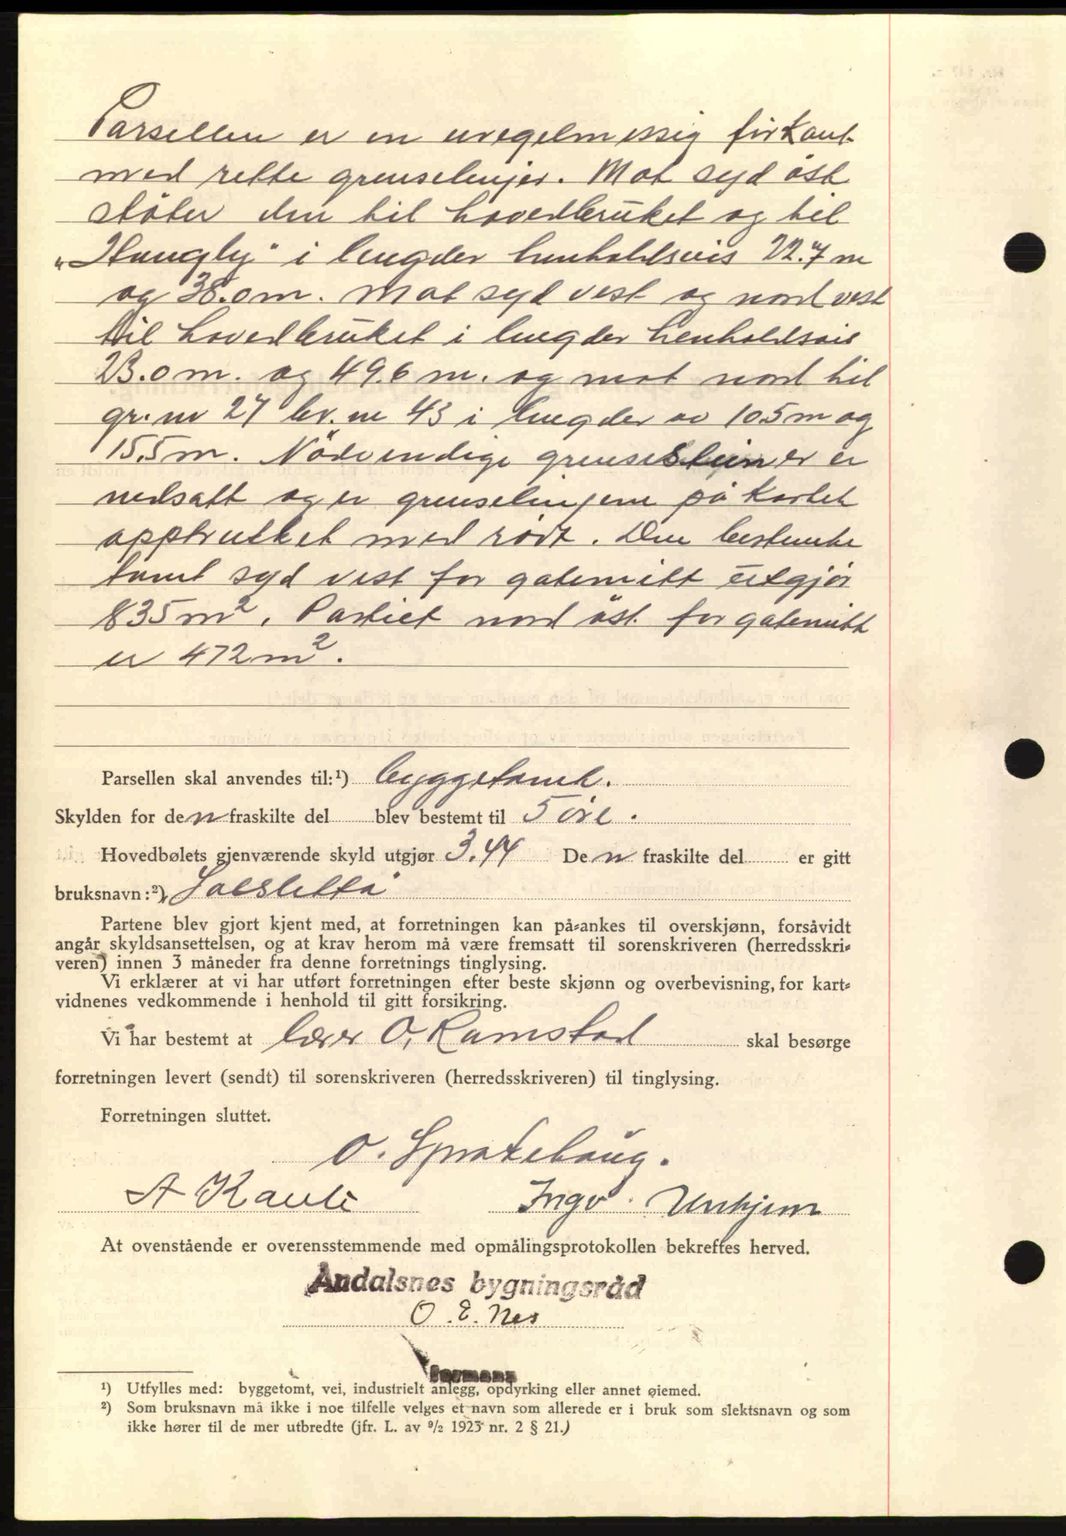 Parsellen er en uregelmessig firkant
med rette grenselinjer. Mot syd öst
støter den til hovedbruket og til
„Haugly" i lengder henholdsvis 22.7 m
og 38.0 m. Mot syd vest og nord vest
til hovedbruket i lengder henholdsvis
23.0 m. og 49.6 m. og mot nord til
gr.nr 27 br.nr 43 i lengder av 10.5 m og
15.5 m. Nödvendige grensesteiner er
nedsatt og er grenselinjene på kartet
opptrukket med rödt. Den bestemte
tomt syd vest for gatemitt utgjör
835 m². Partiet nord öst for gatemitt
er 472 m².
Parsellen skal anvendes til:¹) byggetomt.
Skylden for den fraskilte del blev bestemt til 5 öre.
Hovedbølets gjenværende skyld utgjør 3.44 Den fraskilte del er gitt
bruksnavn:²) Solsletta
Partene blev gjort kjent med, at forretningen kan på-ankes til overskjønn, forsåvidt
angår skyldsansettelsen, og at krav herom må være fremsatt til sorenskriveren (herredsskri-
veren) innen 3 måneder fra denne forretnings tinglysing.
Vi erklærer at vi har utført forretningen efter beste skjønn og overbevisning, for kart-
vidnenes vedkommende i henhold til gitt forsikring.
Vi har bestemt at lærer O. Ramstad skal besørge
forretningen levert (sendt) til sorenskriveren (herredsskriveren) til tinglysing.
Forretningen sluttet.
O. Sprakehaug.
A Kavli Ingv. Unhjem
At ovenstående er overensstemmende med opmålingsprotokollen bekreftes herved.
Åndalsnes bygningsråd
O. E. Nes
formann
¹) Utfylles med: byggetomt, vei, industrielt anlegg, opdyrking eller annet øiemed.
²) Som bruksnavn må ikke i noe tilfelle velges et navn som allerede er i bruk som slektsnavn og som
ikke hører til de mer utbredte (jfr. L. av ⁹/₂ 1923 nr. 2 § 21.)